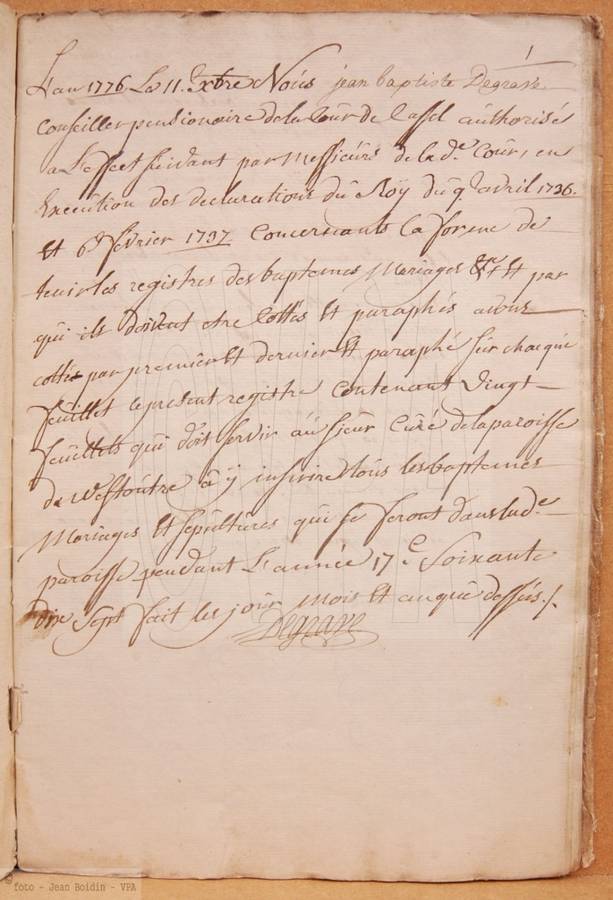 1
L'an 1776 Le 11. Xbre Nous jean baptiste Degrave
Conseiller pensionaire de la Cour de Cassel authorisé
a L'effect suivant par Messieurs de lad.e Cour, en
Execution des declarations du Roÿ du 9. avril 1736.
et 6. fevrier 1737 Concernants la forme de
tenir les registres des baptemes Mariages &c. Et par
qui ils doivent etre Cottés Et paraphés avons
cotté par premier Et dernier Et paraphé sur chaque
feuillet le present registre Contenant Vingt
feuillets qui doit servir au sieur Curé de la paroisse
de Westoutre a ÿ inscrire tous les baptemes
Mariages Et sepultures qui se feront dans lad.e
paroisse pendant L'année 17.c Soixante
dix Sept fait les jour Mois Et an que dessus./.
Degrave
© foto - Jean Boidin - VPA